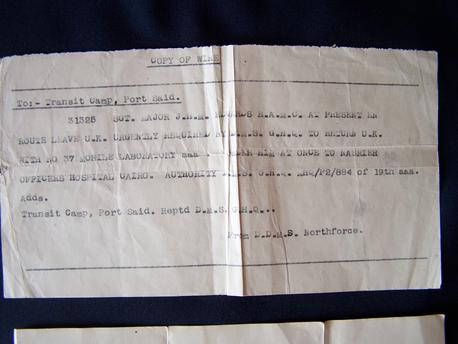 COPY OF WIRE
To:- Transit Camp, Port Said.
31325 SGT. MAJOR J.H.M. R.A.M.C. AT PRESENT EN
ROUTE LEAVE U.K. URGENTLY REQUIRED BY D.M.S. G.H.Q. TO RETURN U.K.
WITH NO 37 MOBILE LABORATORY aaa HIM AT ONCE TO
OFFICERS HOSPITAL CAIRO. AUTHORITY G.H.Q. of 19th aaa.
Adds.
Transit Camp, Port Said. Reptd D.M.S. G.H.Q...
From D.D.M.S. Northforce.